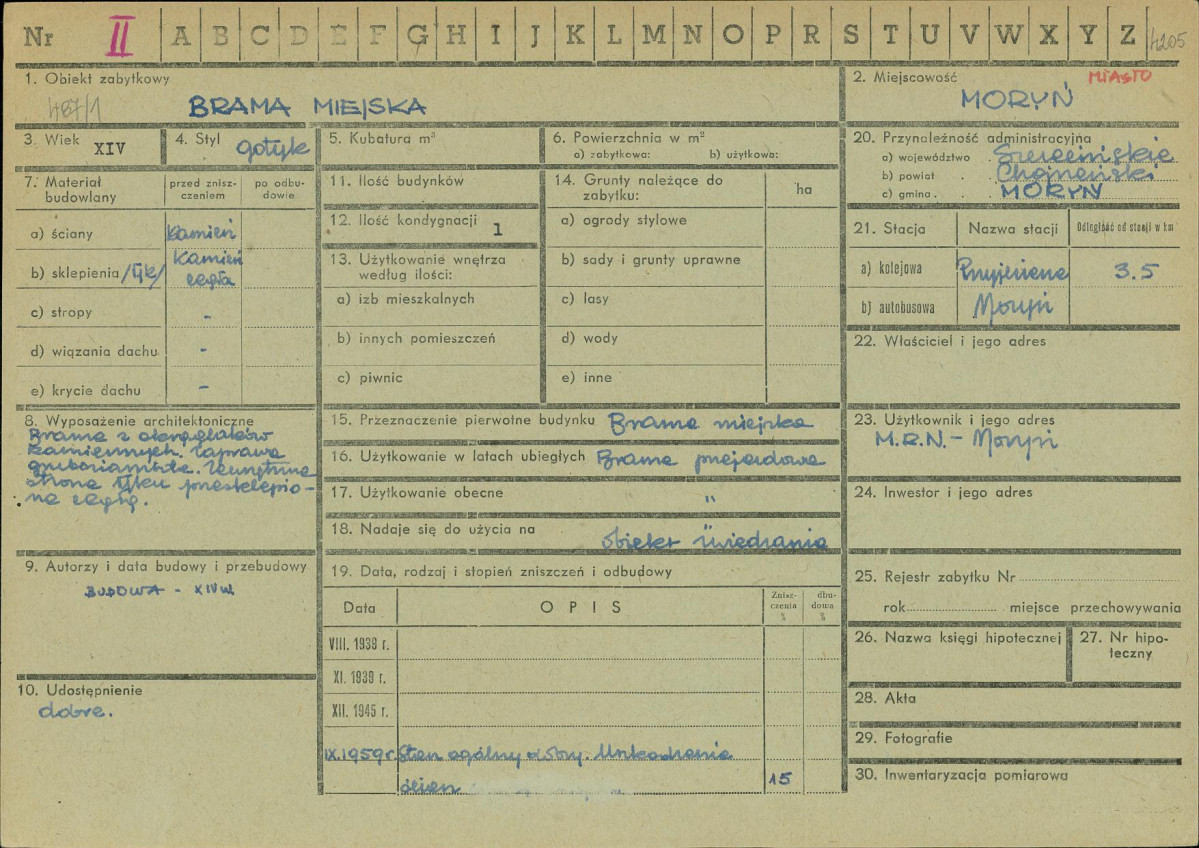 Nr II A B C D E F G H I J K L M N O P R S T U V W X Y Z 4205
1. Obiekt zabytkowy
487/1
BRAMA MIEJSKA
2. Miejscowość MIASTO
MORYŃ
3. Wiek XIV
4. Styl gotyk
5. Kubatura m³
6. Powierzchnia w m²
a) zabytkowa: b) użytkowa:
7. Materiał budowlany
przed zniszczeniem
po odbudowie
a) ściany kamień
b) sklepienia /łęk/ kamień
cegła
c) stropy -
d) wiązania dachu -
e) krycie dachu -
8. Wyposażenie architektoniczne
Brama z otoczaków
kamiennych. Zaprawa
gruboziarnista. Zewnętrzna
strona łęku przesklepio-
na cegłą.
9. Autorzy i data budowy i przebudowy
BUDOWA - XIV w.
10. Udostępnienie
dobre.
11. Ilość budynków
12. Ilość kondygnacji 1
13. Użytkowanie wnętrza
według ilości:
a) izb mieszkalnych
b) innych pomieszczeń
c) piwnic
14. Grunty należące do
zabytku:
ha
a) ogrody stylowe
b) sady i grunty uprawne
c) lasy
d) wody
e) inne
15. Przeznaczenie pierwotne budynku Brama miejska
16. Użytkowanie w latach ubiegłych Brama przejazdowa
17. Użytkowanie obecne "
18. Nadaje się do użycia na obiekt zwiedzania
19. Data, rodzaj i stopień zniszczeń i odbudowy
Data OPIS Zniszczenia % dbudowa %
VIII. 1939 r.
XI. 1939 r.
XII. 1945 r.
IX.1959 r. Stan ogólny dobry. Uszkodzenia
ścian 15
20. Przynależność administracyjna
a) województwo Szczecińskie
b) powiat Chojeński
c) gmina MORYŃ
21. Stacja Nazwa stacji Odległość od stacji w km
a) kolejowa Przyjezierze 3.5
b) autobusowa Moryń
22. Właściciel i jego adres
23. Użytkownik i jego adres
M.R.N. - Moryń
24. Inwestor i jego adres
25. Rejestr zabytku Nr
rok miejsce przechowywania
26. Nazwa księgi hipotecznej
27. Nr hipo-
teczny
28. Akta
29. Fotografie
30. Inwentaryzacja pomiarowa